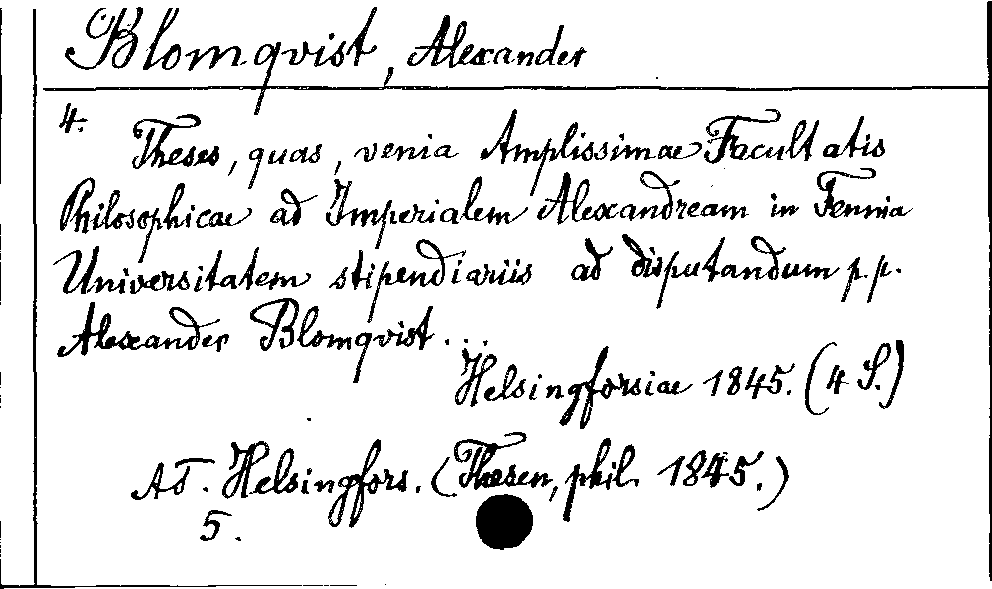 Blomqvist, Alexander
4.
Theses, quas, venia Amplissimae Facultatis
Philosophicae ad Imperialem Alexandream in Fennia
Universitatem stipendiariis ad disputandum p.p.
Alexander Blomqvist...
Helsingforsiae 1845. (4 S.)
AT. Helsingfors. (Thesen, phil. 1845.)
5.